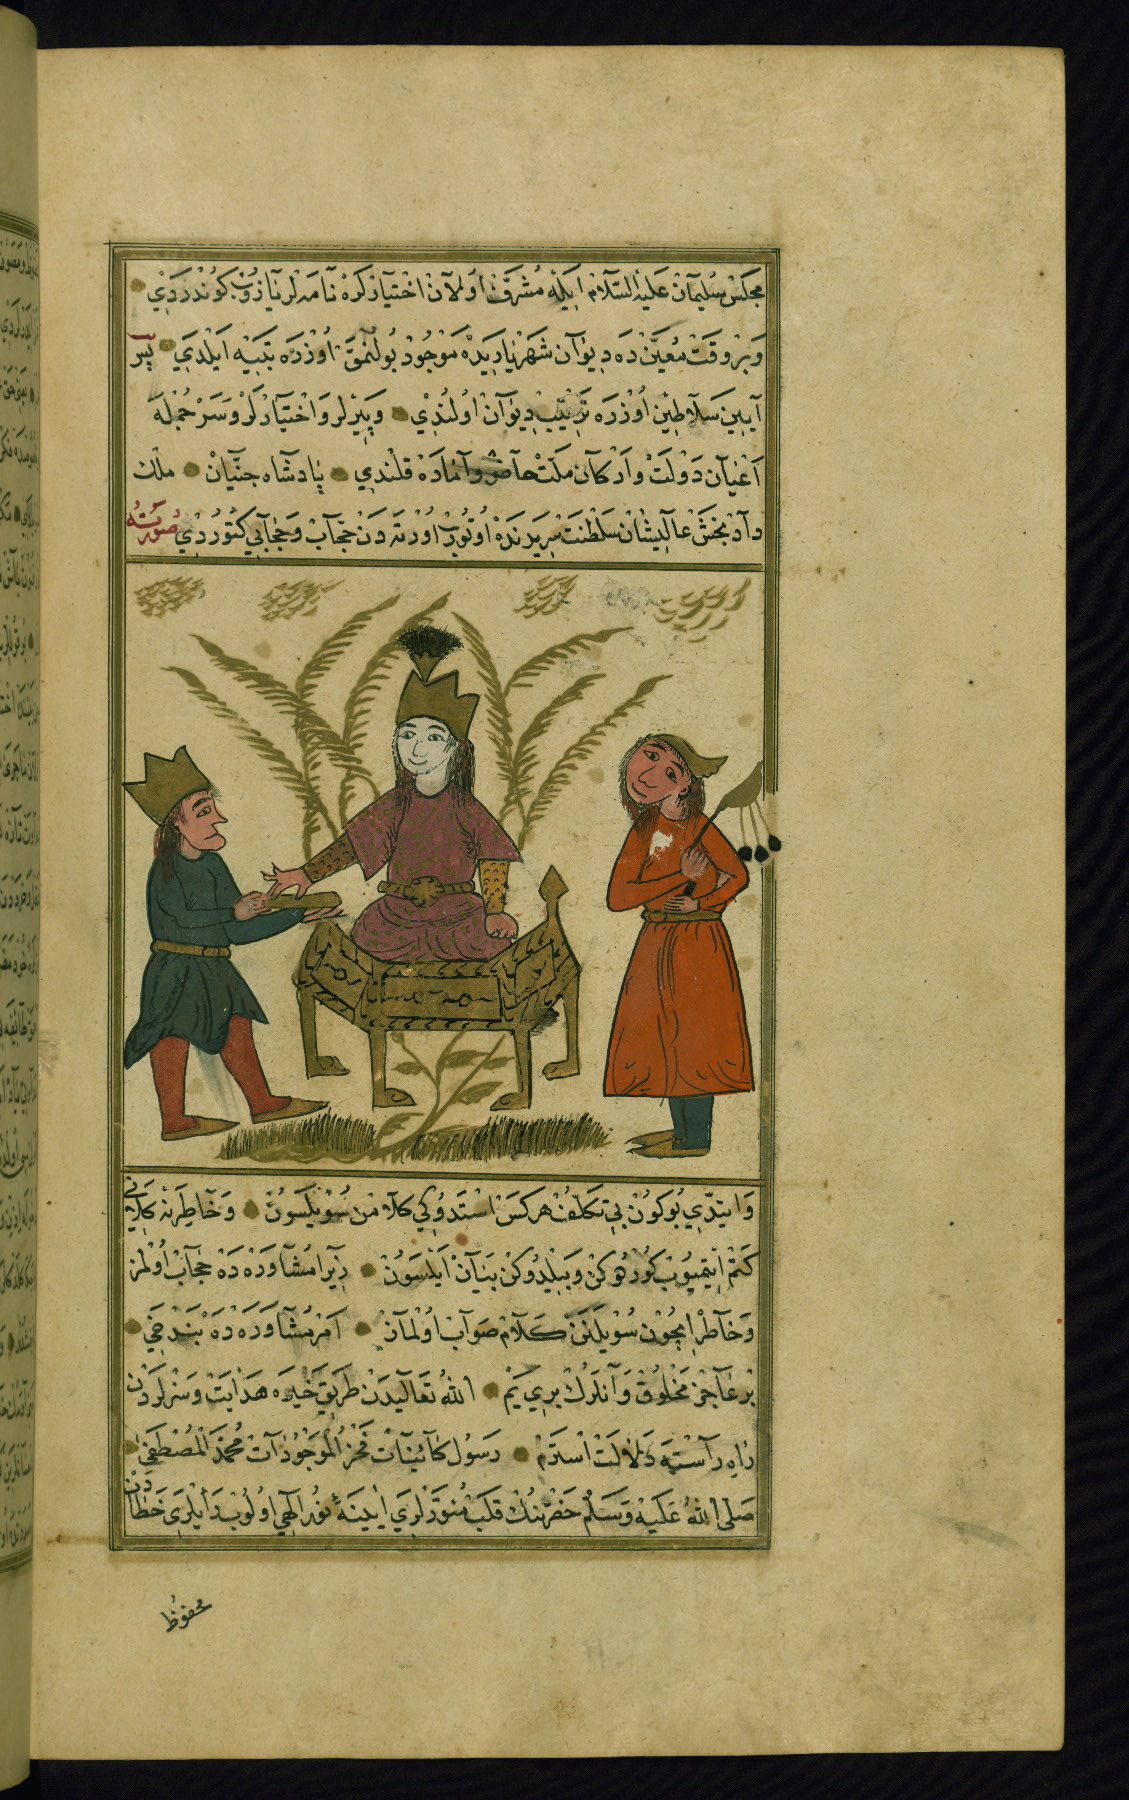 مجلس سليمان عليه السلام ايله مشرف اولان اختيارلره نامه لر يازوب كوندردي
وبر وقت معين ده ديوان شهرياريده موجود بولنمق اوزره تنبيه ايلدي پس
آيين سلاطين اوزره ترتيب ديوان اولندي وپيرلر واختيارلر وسر جمله
اعيان دولت واركان ملت حاضر وآماده قلندي پادشاه جنيان ملك
دادبخش عاليشان سلطنت سريرنده اوتوروب اورته دن حجاب وحجابي كتوردي صورته
وايتدي بوكون بي تكلف هركس استدوكي كلامن سويلسون وخاطرنه كلاني
كتم ايتميوب كوردوكن وبيلدوكن بيان ايلسون زيرا مشاوره ده حجاب اولمز
وخاطر ايچون سويلنن كلام صواب اولماز امر مشاوره ده بن دخي
بر عاجز مخلوق وآنلرك بري يم الله تعاليدن طريق خيره هدايت وسزلردن
راه راسته دلالت استرم رسول كائنات فخر الموجودات محمد المصطفى
صلى الله عليه وسلم حضرتنك قلب منورلري آيينه نور الهي اولوب رايلري خطادن
محفوظ